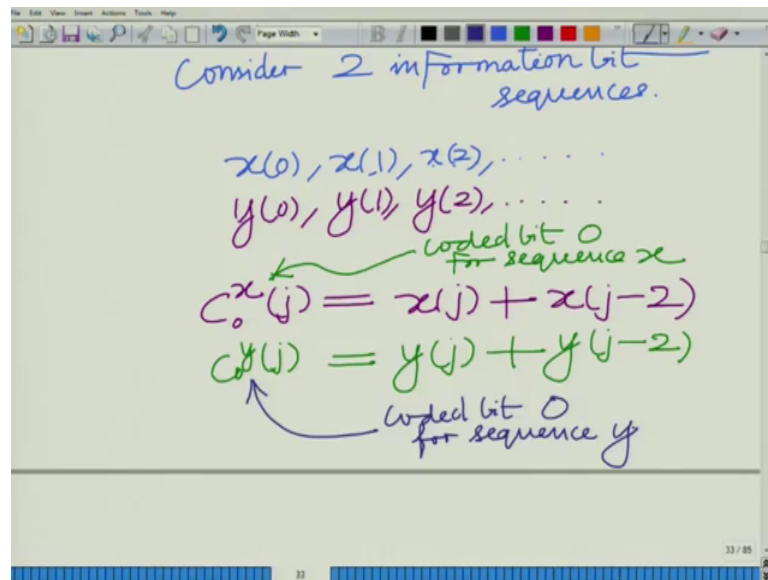 File Edit View Insert Actions Tools Help
Page Width
B I
Consider 2 information bit
sequences.
x(0), x(1), x(2), .....
y(0), y(1), y(2), .....
coded bit 0
for sequence x
C₀ˣ(j) = x(j) + x(j-2)
C₀ʸ(j) = y(j) + y(j-2)
coded bit 0
for sequence y
33 / 85
33